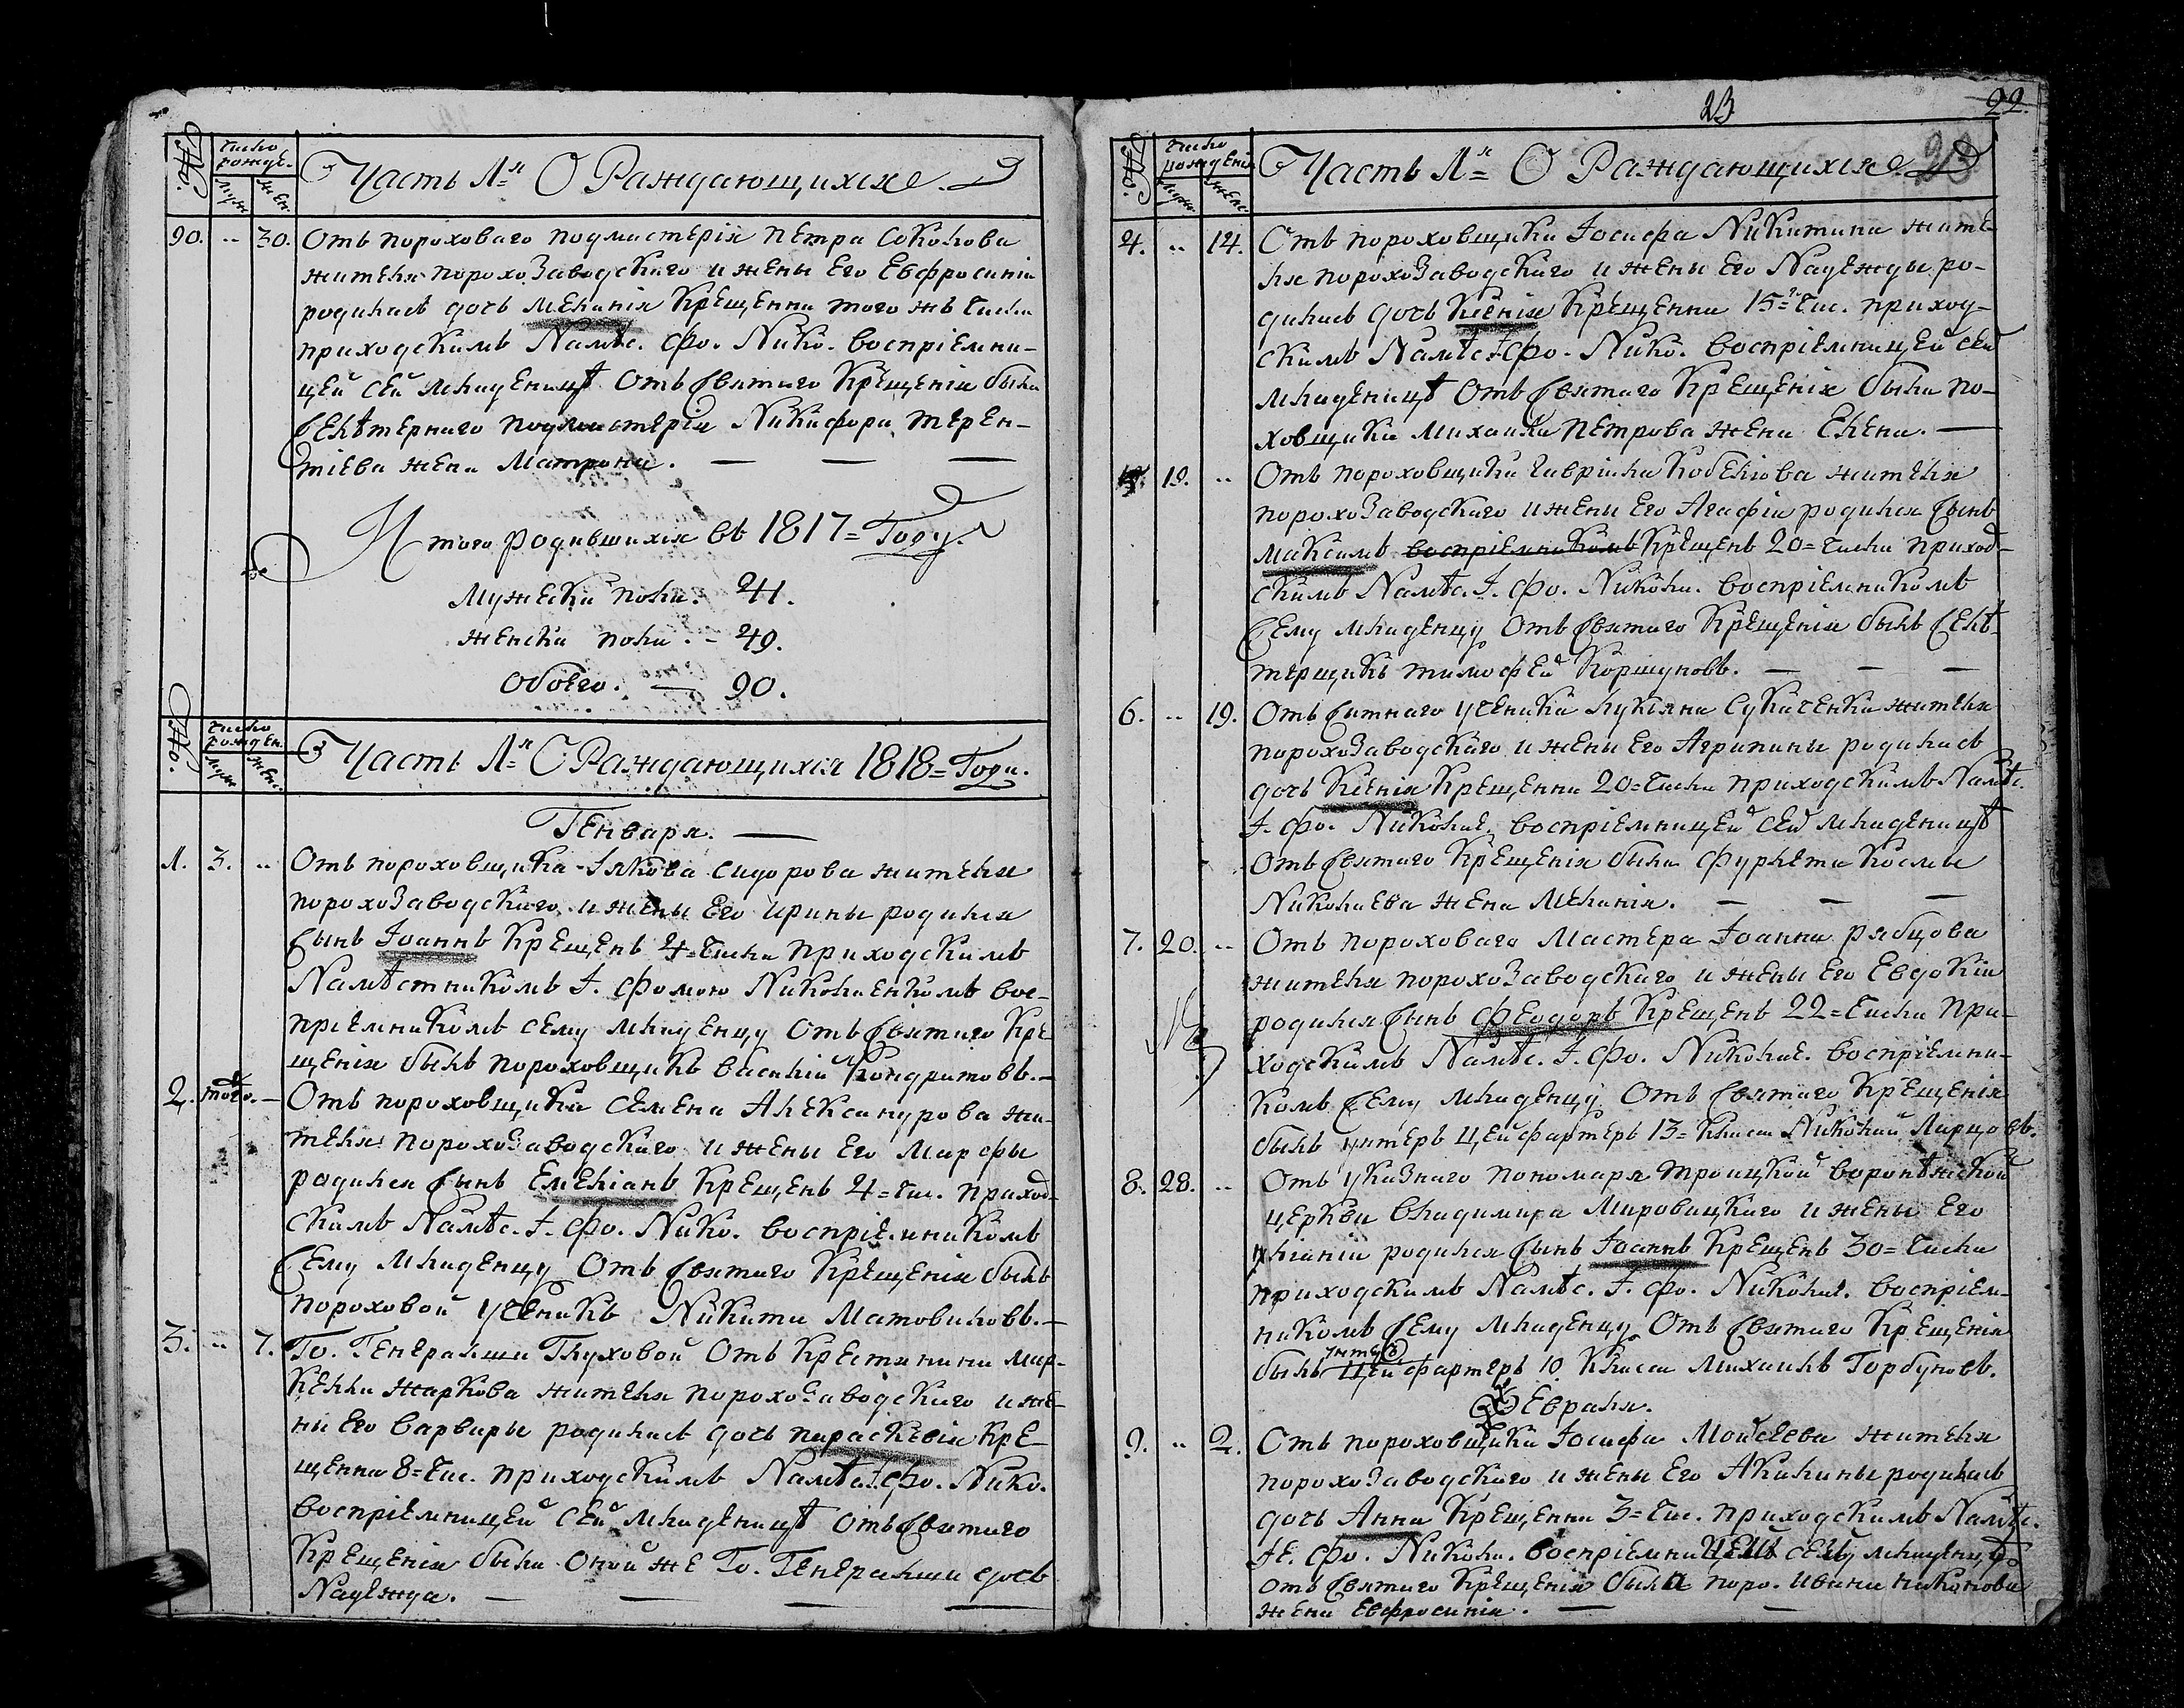 №.
число рожде.
муж.
жен.
Часть 1=я О Раждающихся
90. .. 30. Отъ пороховаго подмастерія Петра Соколова
жителя порохозаводскаго и жены Его Евфросиніи
родилась дочь Меланія Крещенна того жъ числа
приходскимъ Намѣс. Фо. Нико. воспріемни-
цей сей младеницѣ Отъ Святаго Крещенія была
Селѣтернаго подмастерія Никифора Терен-
тіева жена Матрона.
Итого родившихся въ 1817= Году.
Мужеска пола. 41.
женска пола. - 49.
Обоего. — 90.
№.
число рожден.
муж.
жен.
Часть 1=я О Раждающихся 1818= Года.
Генваря.
1. 3. .. Отъ пороховщика Іякова Сидорова жителя
порохозаводскаго и жены Его Ирины родился
Сынъ Іоаннъ Крещенъ 4= числа приходскимъ
Намѣстникомъ І. Фомою Николаенкомъ вос-
пріемникомъ сему младенцу Отъ Святаго Кре
щенія былъ пороховщикъ Василій Кондратовъ.
2. того. — Отъ пороховщика Семена Александрова жи-
теля порохозаводскаго и жены Его Марфы
родился Сынъ Емеліанъ Крещенъ 4= чис. приход-
скимъ Намѣс. І. Фо. Нико. воспріемникомъ
Сему младенцу Отъ Святаго Крещенія былъ
пороховой ученикъ Никита Матовиловъ.
3. .. 7. Го. Генеральши Глуховой Отъ Крестянина Мар-
келла Жаркова жителя порохозаводскаго и же-
ны Его Варвары родилась дочь Параскевія Кре-
щенна 8= чис. приходскимъ Намѣс. І. Фо. Нико.
воспріемницей сей младеницѣ отъ Святаго
Крещенія была оной же Го. Генеральши дочь
Надежда.
23
22.
23
№.
число рожденія
муж.
жен.
Часть 1=я О Раждающихся
4. .. 14. Отъ пороховщика Іосифа Никитина жите-
ля порохозаводскаго и жены Его Надежды ро-
дилась дочь Ксенія Крещенна 15= чис. приход-
скимъ Намѣс. І. Фо. Нико. воспріемницей сей
младеницѣ Отъ Святаго Крещенія была по-
ховщика Михаила Петрова жена Елена.
5. 19. .. Отъ пороховщика Гавріила Кобелюва жителя
порохозаводскаго и жены Его Агафіи родился Сынъ
Максимъ воспріемникомъ Крещенъ 20= числа приход-
скимъ Намѣс. І. Фо. Никола. воспріемникомъ
Сему младенцу Отъ Святаго Крещенія былъ Селѣ-
терщикъ Тимофей Коршуновъ.
6. .. 19. Отъ Ситнаго ученика Лукіяна Сукаченка жителя
порохозаводскаго и жены Его Агрипины родилась
дочь Ксенія Крещенна 20= числа приходскимъ Намѣс.
І. Фо. Николае. воспріемницей сей младеницѣ
Отъ Святаго Крещенія была Фурлета Космы
Николаева жена Меланія.
7. 20. .. Отъ пороховаго Мастера Іоанна Рябцова
жителя порохозаводскаго и жены Его Евдокіи
родился Сынъ Феодоръ Крещенъ 22= числа при-
ходскимъ Намѣс. І. Фо. Николае. воспріемни-
комъ Сему младенцу Отъ Святаго Крещенія
былъ унтеръ цейфартеръ 13= класа Николай Марцовъ.
8. 28. .. Отъ указнаго пономаря Троицкой воронѣжской
церкви Владимира Мировицкаго и жены Его
Уліаніи родился Сынъ Іоаннъ Крещенъ 30= числа
приходскимъ Намѣс. І. Фо. Николае. воспріем-
никомъ Сему младенцу Отъ Святаго Крещенія
былъ унтеръ Цейфартеръ 10. Класа Михаилъ Горбуновъ.
Февраля.
9. .. 2. Отъ пороховщика Іосифа Моисеева жителя
порохозаводскаго и жены Его Акилины родилась
дочь Анна Крещенна 3= чис. приходскимъ Намѣс.
Іе. Фо. Никола. воспріемницей сей младеницѣ
отъ Святаго Крещенія была поро. Ивана Никонова
жена Евфросинія.